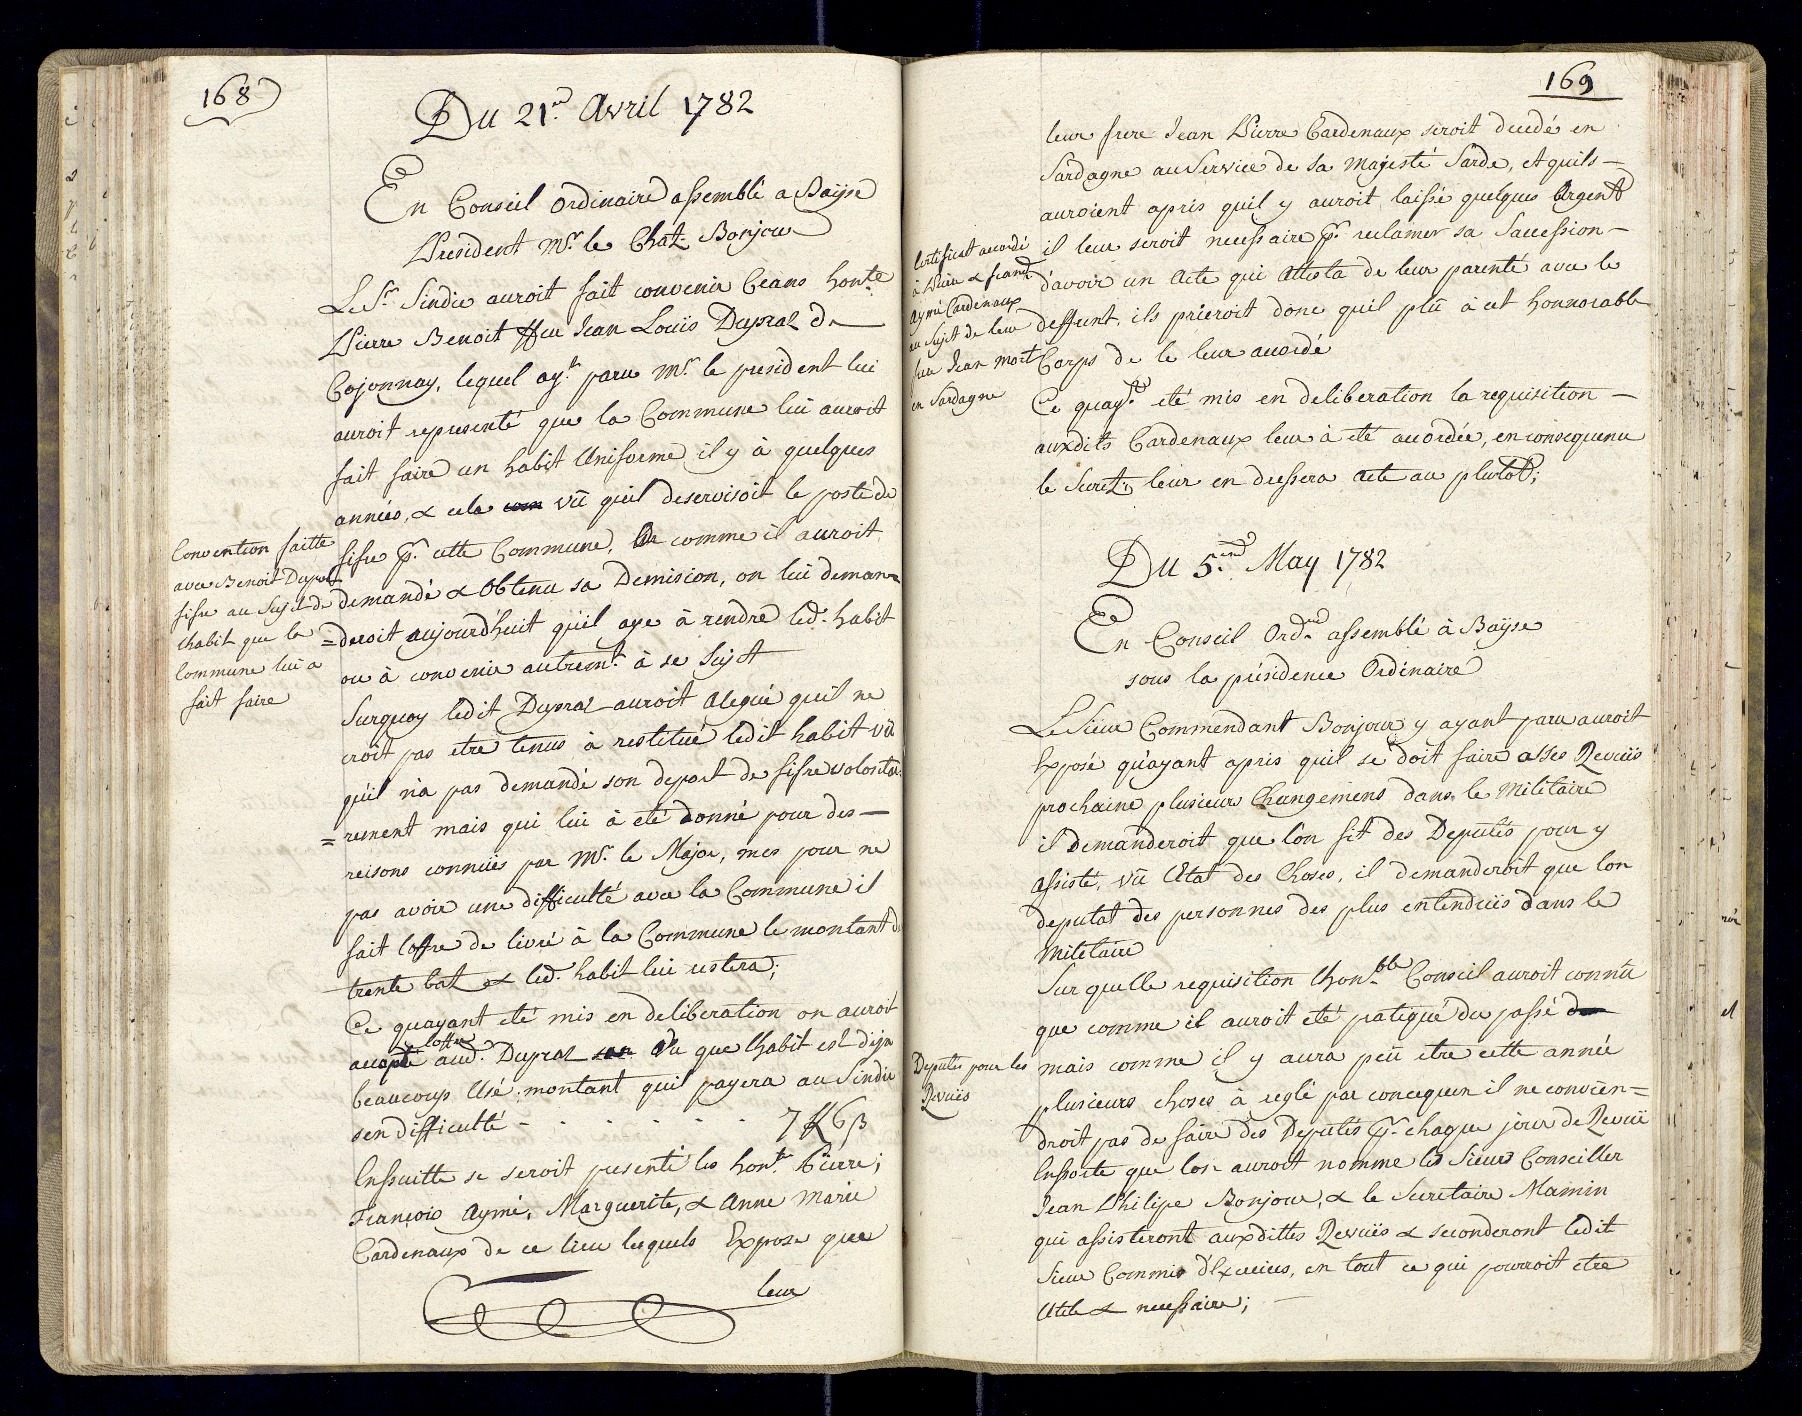 168
Du 21e. Avril 1782
En Conseil ordinaire assemblé a Bayse
President Mr. le Chat. Bonjour
Le Sr. Sindic auroit fait convenir Ceans honte.
Pierre Benoit ffeu Jean Louïs Dupraz de
Cojonnay, lequel ayt. paru Mr. le president lui
auroit representé que la Commune lui auroit
fait faire un habit Uniforme il y à quelques
années, & cela vû quil deservisoit le poste de
fifre pr. cette Commune, De comme il auroit
demandé & Obtenu sa Demision, on lui deman=
=deroit aujourd'huit qu'il aye à rendre led. habit
ou à convenir autremt. à se Sujet
Convention faitte
avec Benoit Dupraz
fifre au Sujet de
lhabit que la
Commune lui a
fait faire
Surquoy ledit Dupraz auroit alegué quil ne
croit pas etre tenus à restitué ledit habit vû
qu'il n'a pas demandé son depart de fifre volontai=
=rement mais qui lui à eté donné pour des
reisons connuës par Mr. le Major, mes pour ne
pas avoir une difficulté avec la Commune il
fait loffre de livré à la Commune le montant de
trente batz & led. habit lui restera;
Ce quayant eté mis en deliberation on auroit
accepté loffre aud. Dupraz Vu que lhabit est deja
beaucoup Usé. montant quil payera au Sindic
sen difficulté - . . . . . 7 ℔ 6 β
Enssuitte se seroit presenté les hont. Pierre;
François Aymé, Marguerite, & Anne Marie
Cardenaux de ce lieu lesquels Expose que
leur
169
leur frere Jean Pierre Cardenaux seroit decedé en
Sardagne au Service de sa Majesté Sarde, et quils
auroient apris quil y auroit laissé quelques Argent
il leur seroit necessaire pr. reclamer sa Succession
d'avoir un Acte qui Attesta de leur parenté avec le
deffunt. ils prieroit donc quil plû à cet honnorable
Corps de le leur acordé
Certificat acordé
à Pierre & francs.
Aymé Cardenaux
au Sujet de leur
frere Jean mort
en Sardagne
Ce quayt. eté mis en deliberation la requisition
auxdits Cardenaux leur à eté acordée, en consequence
le Secret. leur en dressera acte au plutot;
Du 5e. May 1782
En Conseil Ordre. assemblé à Bayse
sous la présidence Ordinaire
Le Sieur Commendant Bonjour y ayant paru auroit
Exposé qu'ayant apris quil se doit faire a ses Revuës
prochaine plusieur Changemens dans le Militaire
il Demanderoit que lon fit des Deputés pour y
assisté, vû l'Etat des Choses, il demanderoit que lon
deputat des personnes des plus entenduës dans le
Militaire
Sur quelle requisition lhonble. Conseil auroit connû
que comme il auroit eté patiqué du passé
mais comme il y aura peû etre cette année
Deputés pour les
Revuës
plusieurs choses à reglé par concequen il ne convien=
droit pas de faire des Deputés pr. chaque jour de Revuë
Enssorte que lon auroit nomme les Sieurs Conseiller
Jean Philipe Bonjour, & le Secretaire Mamin
qui assisteront auxdittes Revuës & seconderont ledit
Sieur Commis d'Exercices, en tout ce qui pourroit etre
Utile & necessaire;